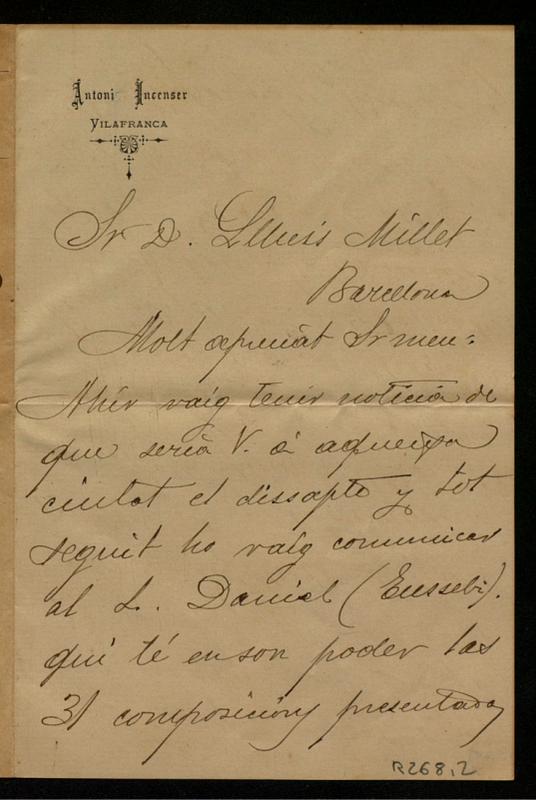 Antoni Incenser
VILAFRANCA
Sr D. Lluis Millet
Barcelona
Molt apreciat Sr meu:
Ahir vaig tenir noticia de
que seria V. á aqueixa
ciutat el dissapte y tot
seguit ho vaig comunicar
al S. Daniel (Eussebi).
qui té en son poder las
31 composicions presentadas
R268,2